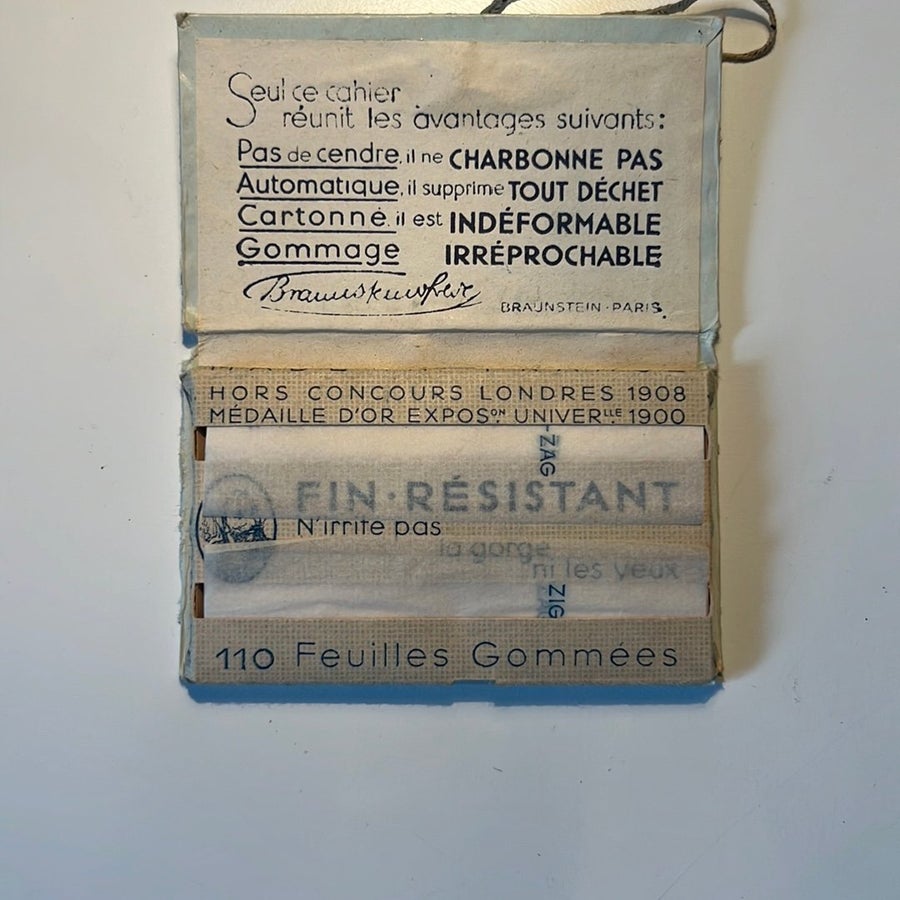 Seul ce cahier
réunit les avantages suivants:
Pas de cendre, il ne CHARBONNE PAS
Automatique, il supprime TOUT DÉCHET
Cartonné, il est INDÉFORMABLE
Gommage IRRÉPROCHABLE
BRAUNSTEIN-PARIS.
HORS CONCOURS LONDRES 1908
MÉDAILLE D'OR EXPOSON. UNIVERLLE. 1900
-ZAG
FIN·RÉSISTANT
N'irrite pas
la gorge
ni les yeux
ZIG
110 Feuilles Gommées